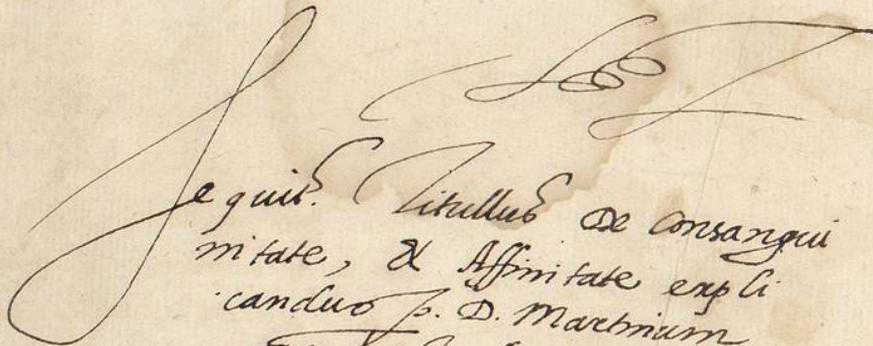 Sequit.r Titullus De Consangui
nitate, & Affinitate expli
candus p. D. Martinium